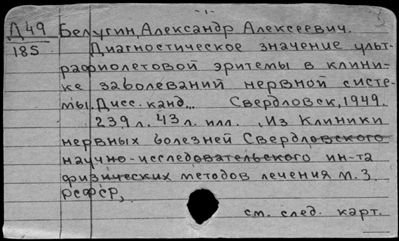 Д49 Белугин, Александр Алексеевич.
185 Диагностическое значение ульт-
рафиолетовой эритемы в клини-
ке заболеваний нервной систе-
мы. Дисс. канд... Свердловск, 1949.
239 л. 43 л. илл. Из Клиники
нервных болезней Свердловского
научно-исследовательского ин-та
физических методов лечения М.З.
РСФСР,
см. след. карт.